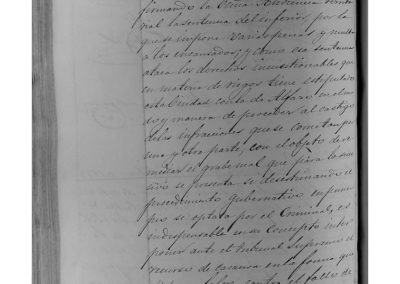 firmando la Exma Audiencia territo
rial la sentencia del inferior, por la
que se impone varias penas y multa
a los encausados; y como esa sentencia
ataca los derechos incuestionables que
en materia de riegos tiene estipulados
esta Ciudad con la de Alfaro en el mo
do y manera de proceder al castigo
de las infracciones que se cometan por
una y otra parte, con el objeto de re
mediar el grabe mal que para lo suce
sivo se presenta si desestimando el
procedimiento gubernativo
se optara por el Criminal, es
indispensable en su Concepto inter
poner ante el tribunal Supremo el
recurso de casacion en la forma que
contra el fallo de